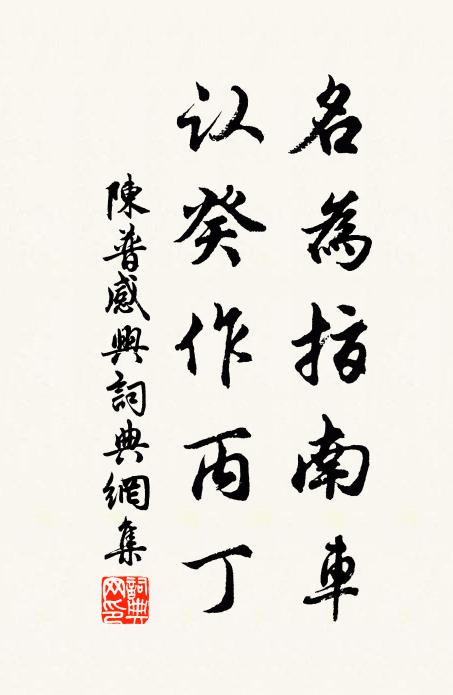 名為指南車
认癸作丙丁
陳普感興詞典網集
詞典网印